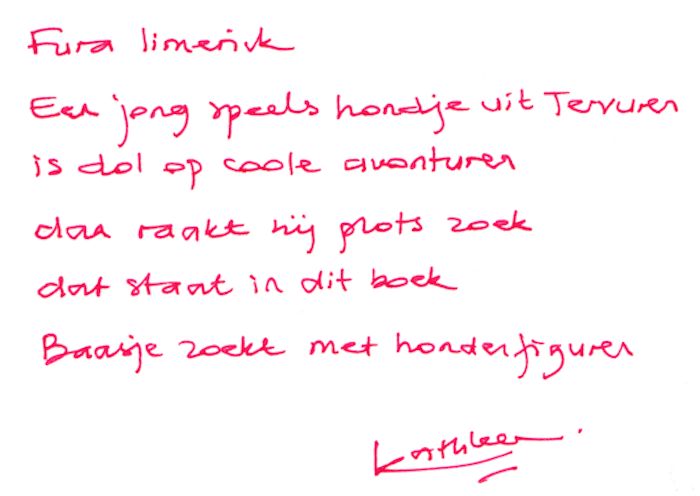 Fura limerick
Een jong speels hondje uit Tervuren
is dol op coole avonturen
dan raakt hij plots zoek
dat staat in dit boek
Baasje zoekt met hondenfiguren
Kathleen.